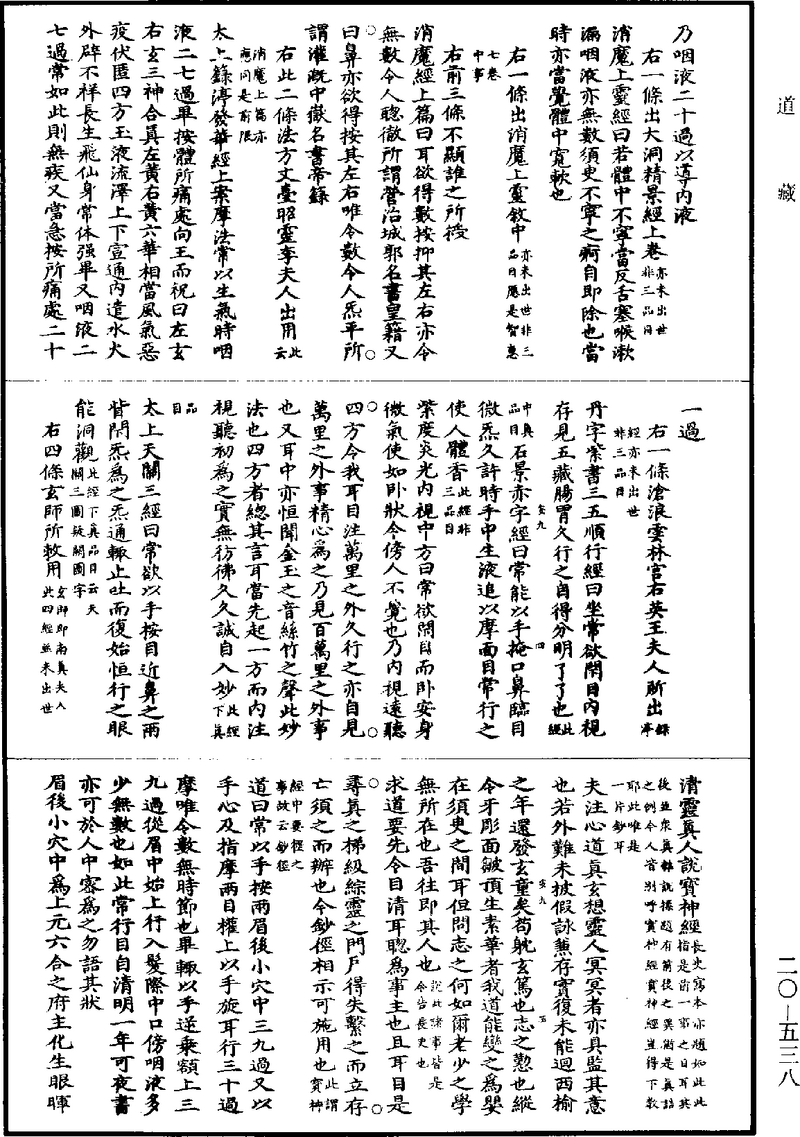 道藏
乃咽液二十過以導內液
右一條出大洞精景經上卷亦未出世非三品目
消魔上靈經曰若體中不寧當反舌塞喉漱
漏咽液亦無數須臾不寧之痾自即除也當
時亦當覺體中寬軟也
右一條出消魔上靈敘中亦未出世非三品目應是智慧七卷中事
右前三條不顯誰之所授
消魔經上篇曰耳欲得數按抑其左右亦令
無數令人聰徹所謂營治城郭名書皇籍又
曰鼻亦欲得按其左右唯令數令人炁平所
謂灌溉中嶽名書帝籙
右此二條法方丈臺昭靈李夫人出用此云消魔上篇亦應同是前限
太上籙渟發華經上案摩法常以生氣時咽
液二七過畢按體所痛處向王而祝曰左玄
右玄三神合真左黃右黃六華相當風氣惡
疫伏匿四方玉液流澤上下宣通內遣水火
外辟不祥長生飛仙身常体强畢又咽液二
七過常如此則無疾又當急按所痛處二十
一過
右一條滄浪雲林宮右英王夫人所出籙渟經亦未出世非三品目
丹字紫書三五順行經曰坐常欲閉目內視
存見五藏腸胃久行之自得分明了了也此經中真品目
石景赤字經曰常能以手掩口鼻臨目
微炁久許時手中生液追以摩面目常行之
使人體香此經非三品目
紫度炎光內視中方曰常欲閉目而臥安身
微氣使如臥狀令傍人不覺也乃內視遠聽
四方令我耳目注萬里之外久行之亦自見
萬里之外事精心為之乃見百萬里之外事
也又耳中亦恒聞金玉之音絲竹之聲此妙
法也四方者總其言耳當先起一方而內注
視聽初為之實無彷彿久久誠自入妙此經下真品目
太上天關三經曰常欲以手按目近鼻之兩
眥閉炁為之炁通輒止吐而復始恒行之眼
能洞觀此經下真品目云天關三圖疑關圖字
右四條玄師所敕用玄師即南真夫人此四經並未出世
清靈真人說寶神經長史寫本亦題如此此
夫注心道真玄想靈人冥冥者亦具監其意
也若外難未披假詠兼存實復未能迴西榆
之年還發玄童矣苟躭玄篤也志之懃也縱
令牙彫面皺頂生素華者我道能變之為嬰
在須臾之間耳但問志之何如爾老少之學
無所在也吾往即其人也說此諸事皆是令告長史也
求道要先令目清耳聰為事主也且耳目是
尋真之梯級綜靈之門戶得失繫之而立存
亡須之而辦也今鈔徑相示可施用也此謂寶神經中要徑之事故云鈔徑
道曰常以手按兩眉後小穴中三九過又以
手心及指摩兩目權上以手旋耳行三十過
摩唯令數無時節也畢輒以手逆乘額上三
九過從眉中始上行入髮際中口傍咽液多
少無數也如此常行目自清明一年可夜書
亦可於人中密為之勿語其狀
眉後小穴中為上元六合之府主化生眼暉
二〇—五三八